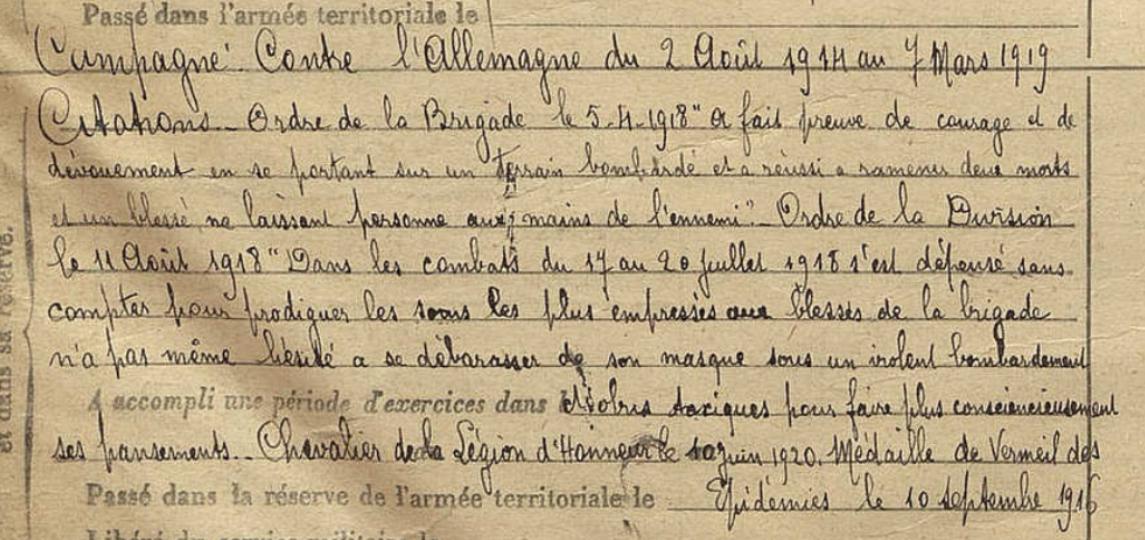 Passé dans l'armée territoriale le
Campagne : Contre l'Allemagne du 2 Août 1914 au 7 Mars 1919
Citations - Ordre de la Brigade le 5-4-1918 " a fait preuve de courage et de
dévouement en se portant sur un terrain bombardé et a réussi a ramener deux morts
et un blessé ne laissant personne aux mains de l'ennemi". Ordre de la Division
le 11 Août 1918 " Dans les combats du 17 au 20 Juillet 1918 s'est dépensé sans
compter pour prodiguer les soins les plus empressés aux blessés de la brigade
n'a pas même hésité a se débarasser de son masque sous un violent bombardement
A accompli une période d'exercices dans l
d'obus toxiques pour faire plus consciencieusement
ses pansements.. Chevalier de la Légion d'Honneur le 10 Juin 1920. Médaille de Vermeil des
Passé dans la réserve de l'armée territoriale le Epidémies le 10 septembre 1916
et dans sa réserve.